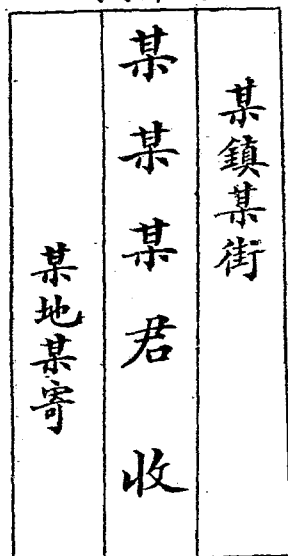 某鎮某街
某某某君收
某地某寄